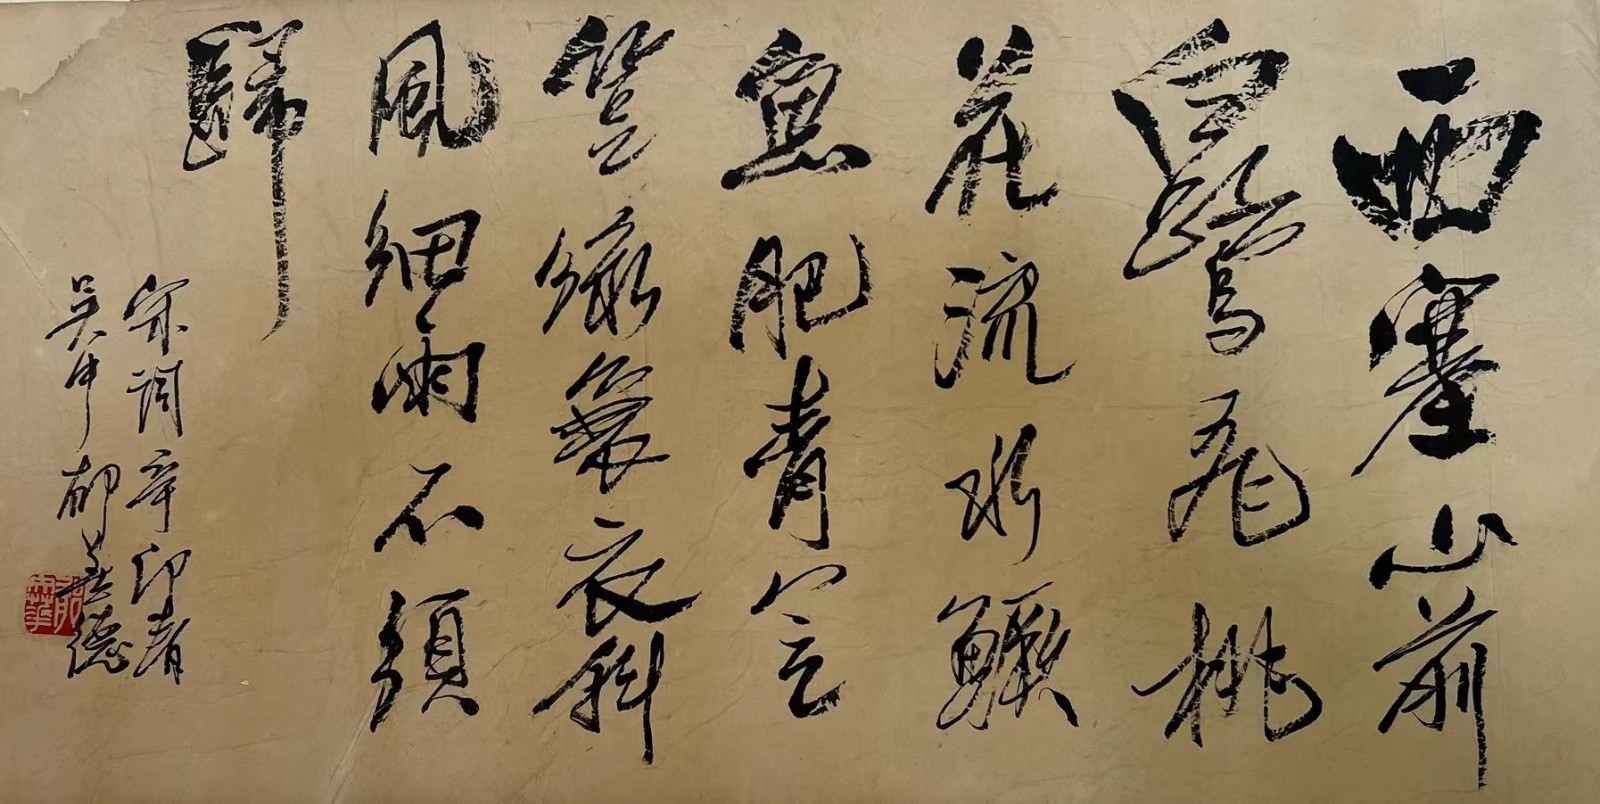 西塞山前
白鷺飛桃
花流水鱖
魚肥青箬
笠綠蓑衣斜
風細雨不須
歸
宋詞辛卯春
吴中